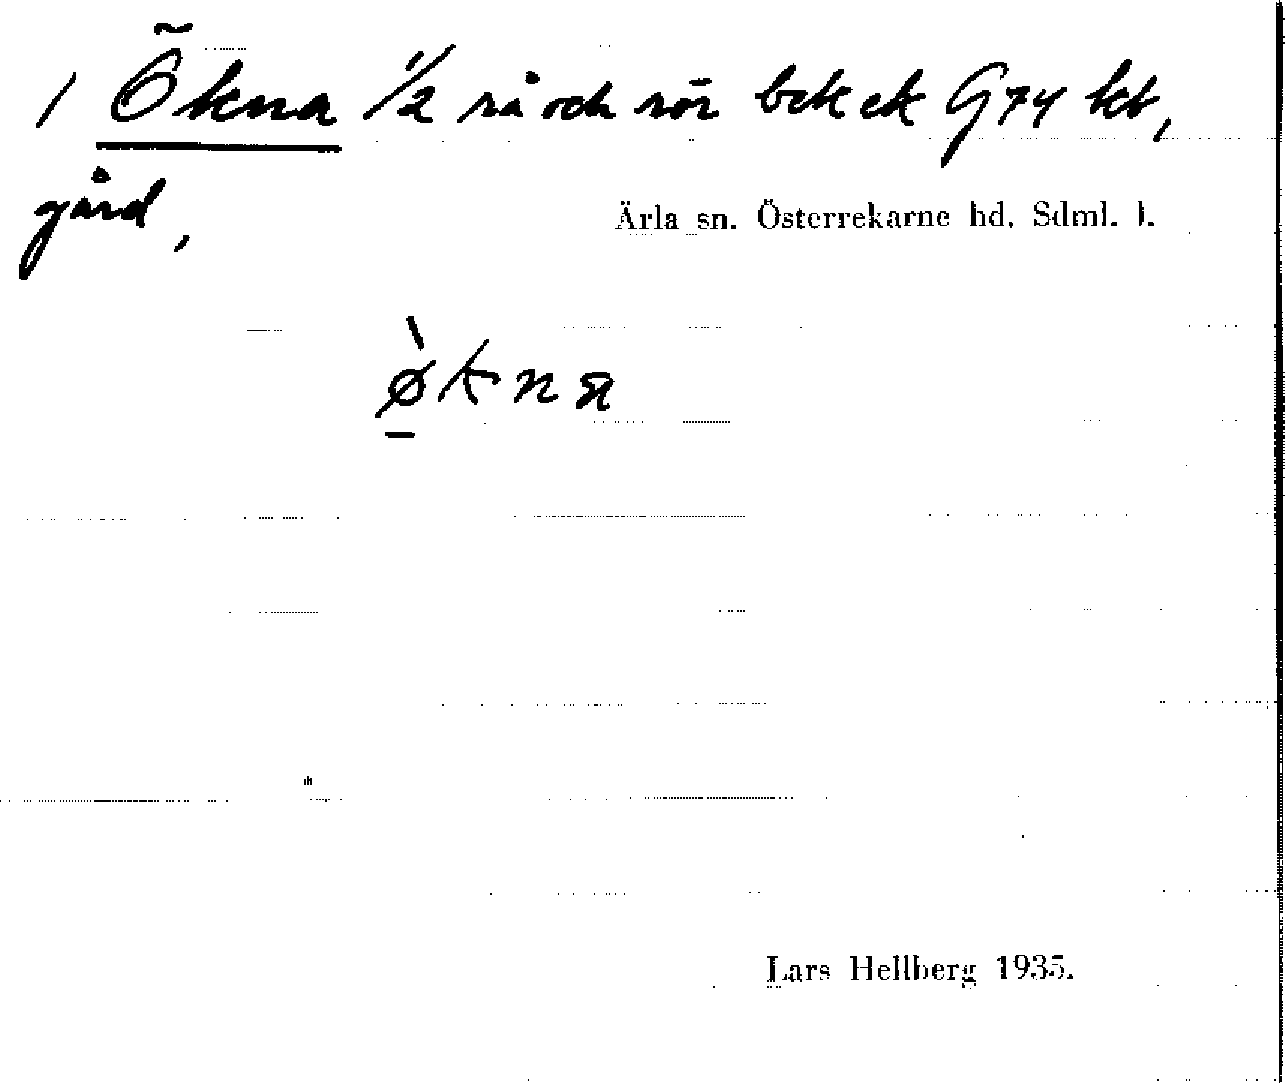 1 Ökna 1/2 rå och rör bek ek G74 kb,
gård,
Ärla sn. Österrekarne hd. Sdml. l.
økna
Lars Hellberg 1935.